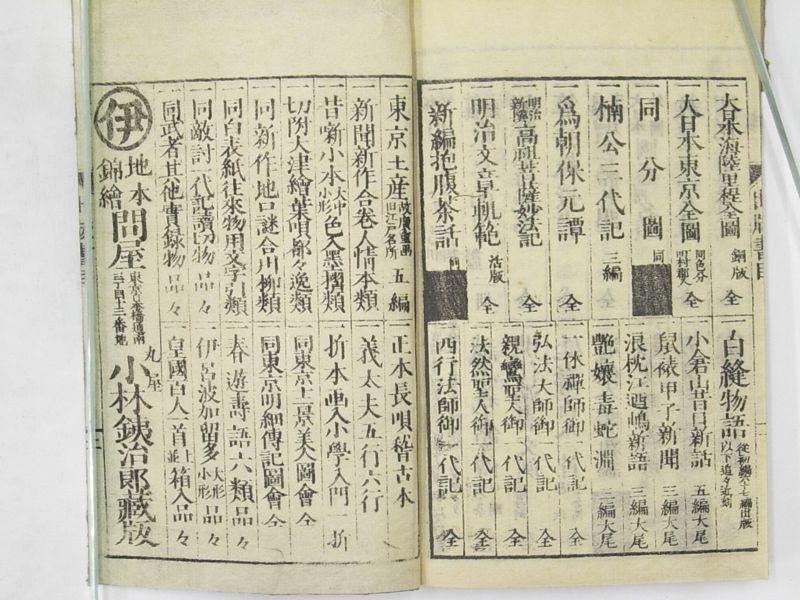 大日本海陸里程全圖 銅版 全
大日本東京全圖 同色分 町村郡入 全
同 分 圖 同
楠公三代記 三編
為朝保元譚 全
明治新撰 高祖菩薩妙法記 全
明治文章軌範 活版 全
新編抱腹茶話 同
白縫物語 従初編六十七編出版 以下追々近刻
小倉山昔日新話 五編大尾
鼠䘰甲子新聞 三編大尾
浪枕江の嶋新語 三編大尾
艷孃毒蛇淵 三編大尾
一休禪師御一代記 全
弘法大師御一代記 全
親鸞聖人御一代記 全
法然聖人御一代記 全
西行法師御一代記 全
東京土産 旧江戸名所 五編
一新聞新作合卷人情本類
一昔噺小本 大中小形 色入黑摺類
一切附大津繪葉唄都々逸類
一同新作地口謎合川柳類
一同白表紙往来物用文字引類
一同敵討一代記讀切物 品々
一同武者其他實録物 品々
一正本長唄稽古本
一義太夫五行六行
一折本画入小學入門 一折
一同東京上景美人圖會 全
一同東京明細傳記圖會 全
一春遊壽語六類 品々
一伊呂波加留多 大形小形 品々
一皇國百人一首 並上 箱入品々
伊
地本
錦繪
問屋
東京日本橋通南
三丁目十三番地
丸屋
小林鉄治郎藏版